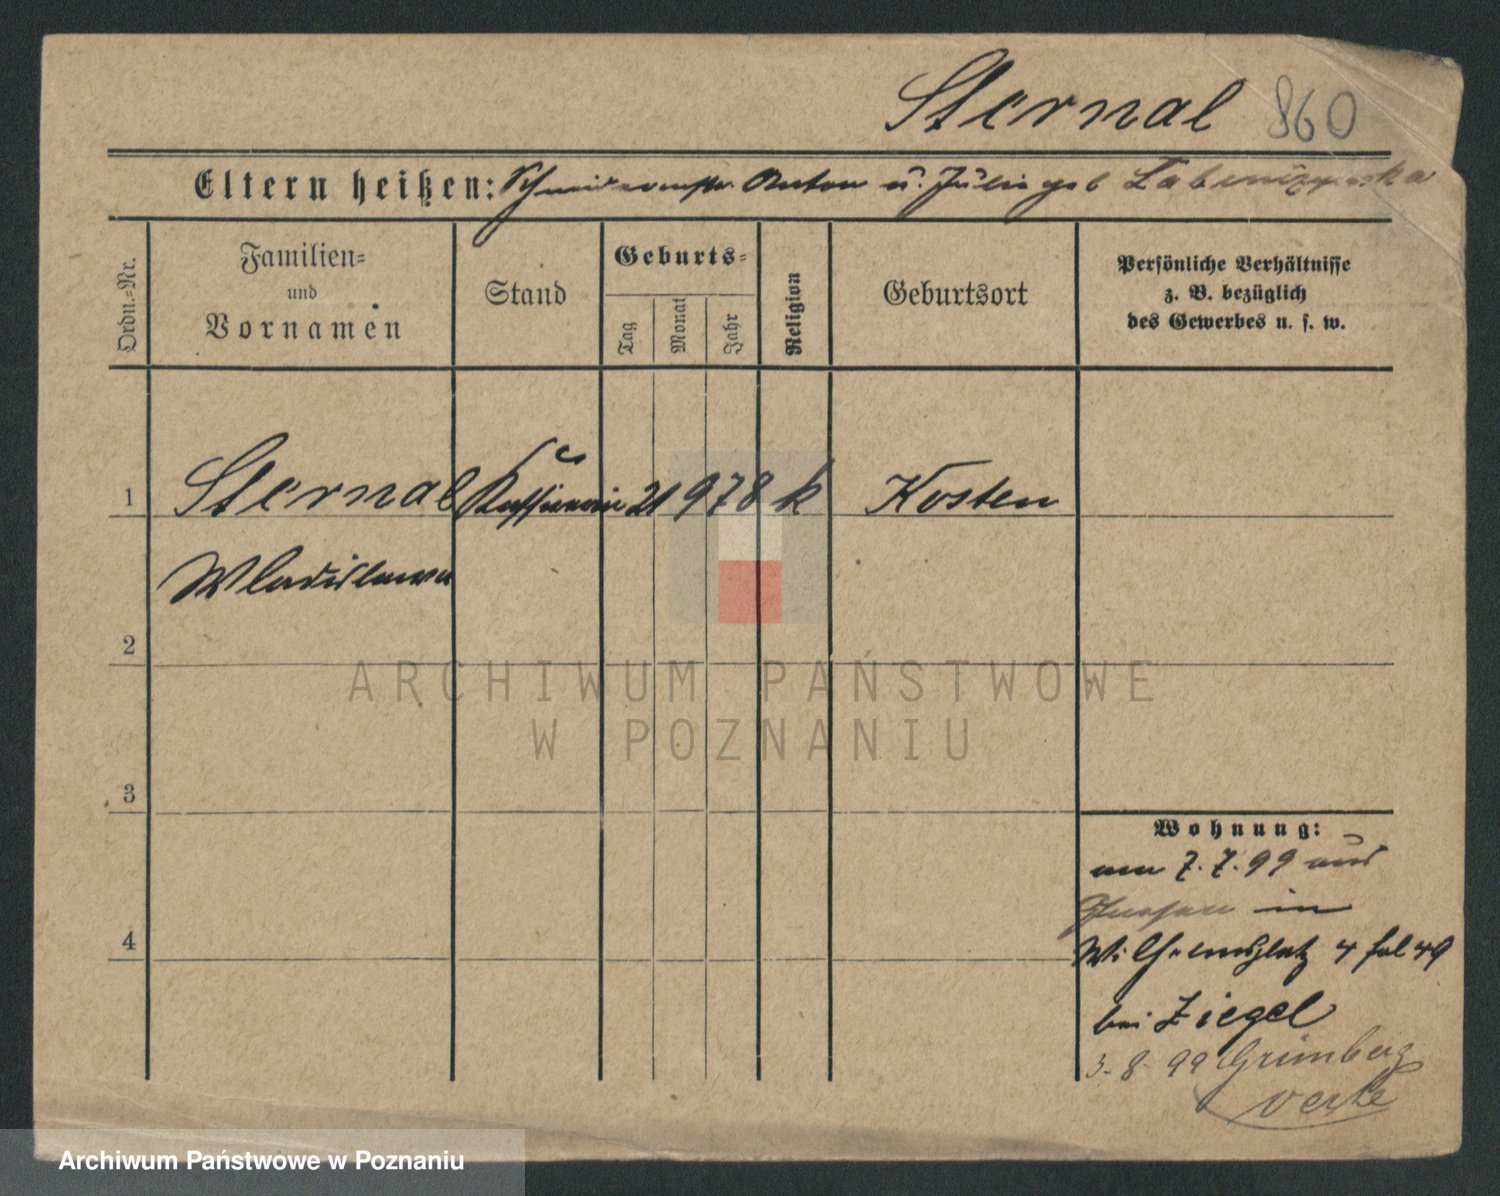 Sternal 860
Eltern heißen: Schneidermstr. Anton u. Julie geb
Ordn.-Nr.
Familien-
und
Vornamen
Stand
Geburts-
Tag
Monat
Jahr
Religion
Geburtsort
Persönliche Verhältnisse
z. B. bezüglich
des Gewerbes u. s. w.
1 Sternal Kassirerin 21 9 78 k Kosten
Wladislawa
2
3
4
Wohnung:
am 7.7.99 aus
Gnesen in
Wilhelmsplatz 4 fol 49
bei Ziegel
3-8-99 Grünberg
ARCHIWUM PAŃSTWOWE
W POZNANIU
Archiwum Państwowe w Poznaniu